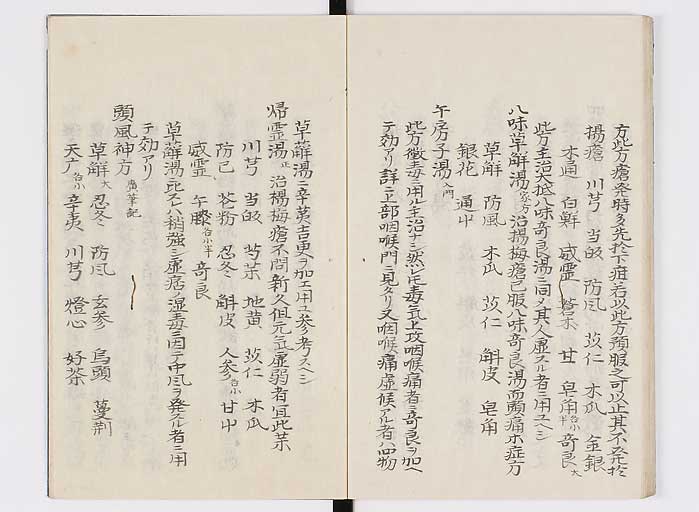 方此方瘡発時多先於下疳若以此方預服之可以止其不発於
楊瘡 川芎 当皈 防風 苡仁 木瓜 金銀
木通 白鮮 威霊 蒼朮 甘 皂角各小半 奇良大
此方主治大抵八味奇良湯ニ同〆其人虚スル者ニ用ユヘシ
八味草薢湯家方 治楊梅瘡已服八味奇良湯而頭痛未症方
草薢 防風 木瓜 苡仁 斛皮 皂角
銀花 通中
午房子湯入門
此方黴毒ニ用ル主治ナシ然レ𪜈毒氣上攻咽喉痛者ニ奇良ヲ加ヘ
テ効アリ詳ニ上部咽喉門ニ見タリ又咽喉痛虚候アル者ハ四物
草薢湯ニ辛荑吉更ヲ加エ用ユ参考スヘシ
帰霊湯正 治楊梅瘡不問新久但元氣虚弱者宜此茶
川芎 当皈 芍茶 地黄 苡仁 木瓜
防已 花粉 忍冬 斛皮 人参各小 甘中
威霊 午膝各小半 奇良
草薢湯ニ比スレハ稍強シ虚痞湿毒ニ因テ中風ヲ発スル者ニ用
テ効アリ
頭風神方 廣筆記
草解大 忍冬 防風 玄参 烏頭 蔓荊
天广各小 辛夷 川芎 燈心 好茶